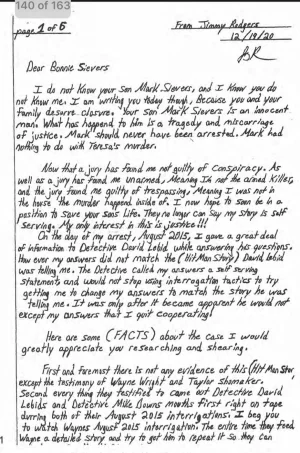 140 of 163
page 1 of 5
From Jimmy Rodgers
12/19/20
Dear Bonnie Sievers
I do not know your Son Mark Sievers, and I know you do
not know me. I am writing you today though, Because you and your
family desurve closure. Your son Mark Sievers is an innocent
man. What has happend to him is a tragedy and miscarriage
of justice. Mark should never have been arrested. Mark had
nothing to do with Teresa's murder.
Now that a jury has found me not guilty of Conspiracy. As
well as a jury has found me unarmed, Meaning I'm not the armed Killer,
and the jury found me guilty of trespassing, Meaning I was not in
the house the murder happend inside of. I now hope to soon be in a
position to save your sons life. They no longer can say my story is self
serving. My only interest in this is justice!!!
On the day of my arrest, August 2015, I gave a great deal
of information to Detective David Lebid while answering his questions.
How ever my answers did not match the (Hit Man Story) David Lebid
was telling me. The Detective called my answers a self serving
statements and would not stop using interrogation tactics to try
getting me to change my answers to match the story he was
telling me. It was only after it became apparent he would not
except my answers that I quit cooperating!
Here are some (FACTS) about the case I would
greatly appreciate you researching and shearing.
First and foremost there is not any evidence of this (Hit Man Story)
except the testimony of Wayne Wright and Taylor Shomaker.
Second every thing they testified to came out Detective David
Lebids and Detective Mike Downs mouths first right on tape
durring both of their August 2015 interrigations. I beg you
to watch Waynes August 2015 interrigation. The entire time they feed
Wayne a detailed story and try to get him to repeat it so they can